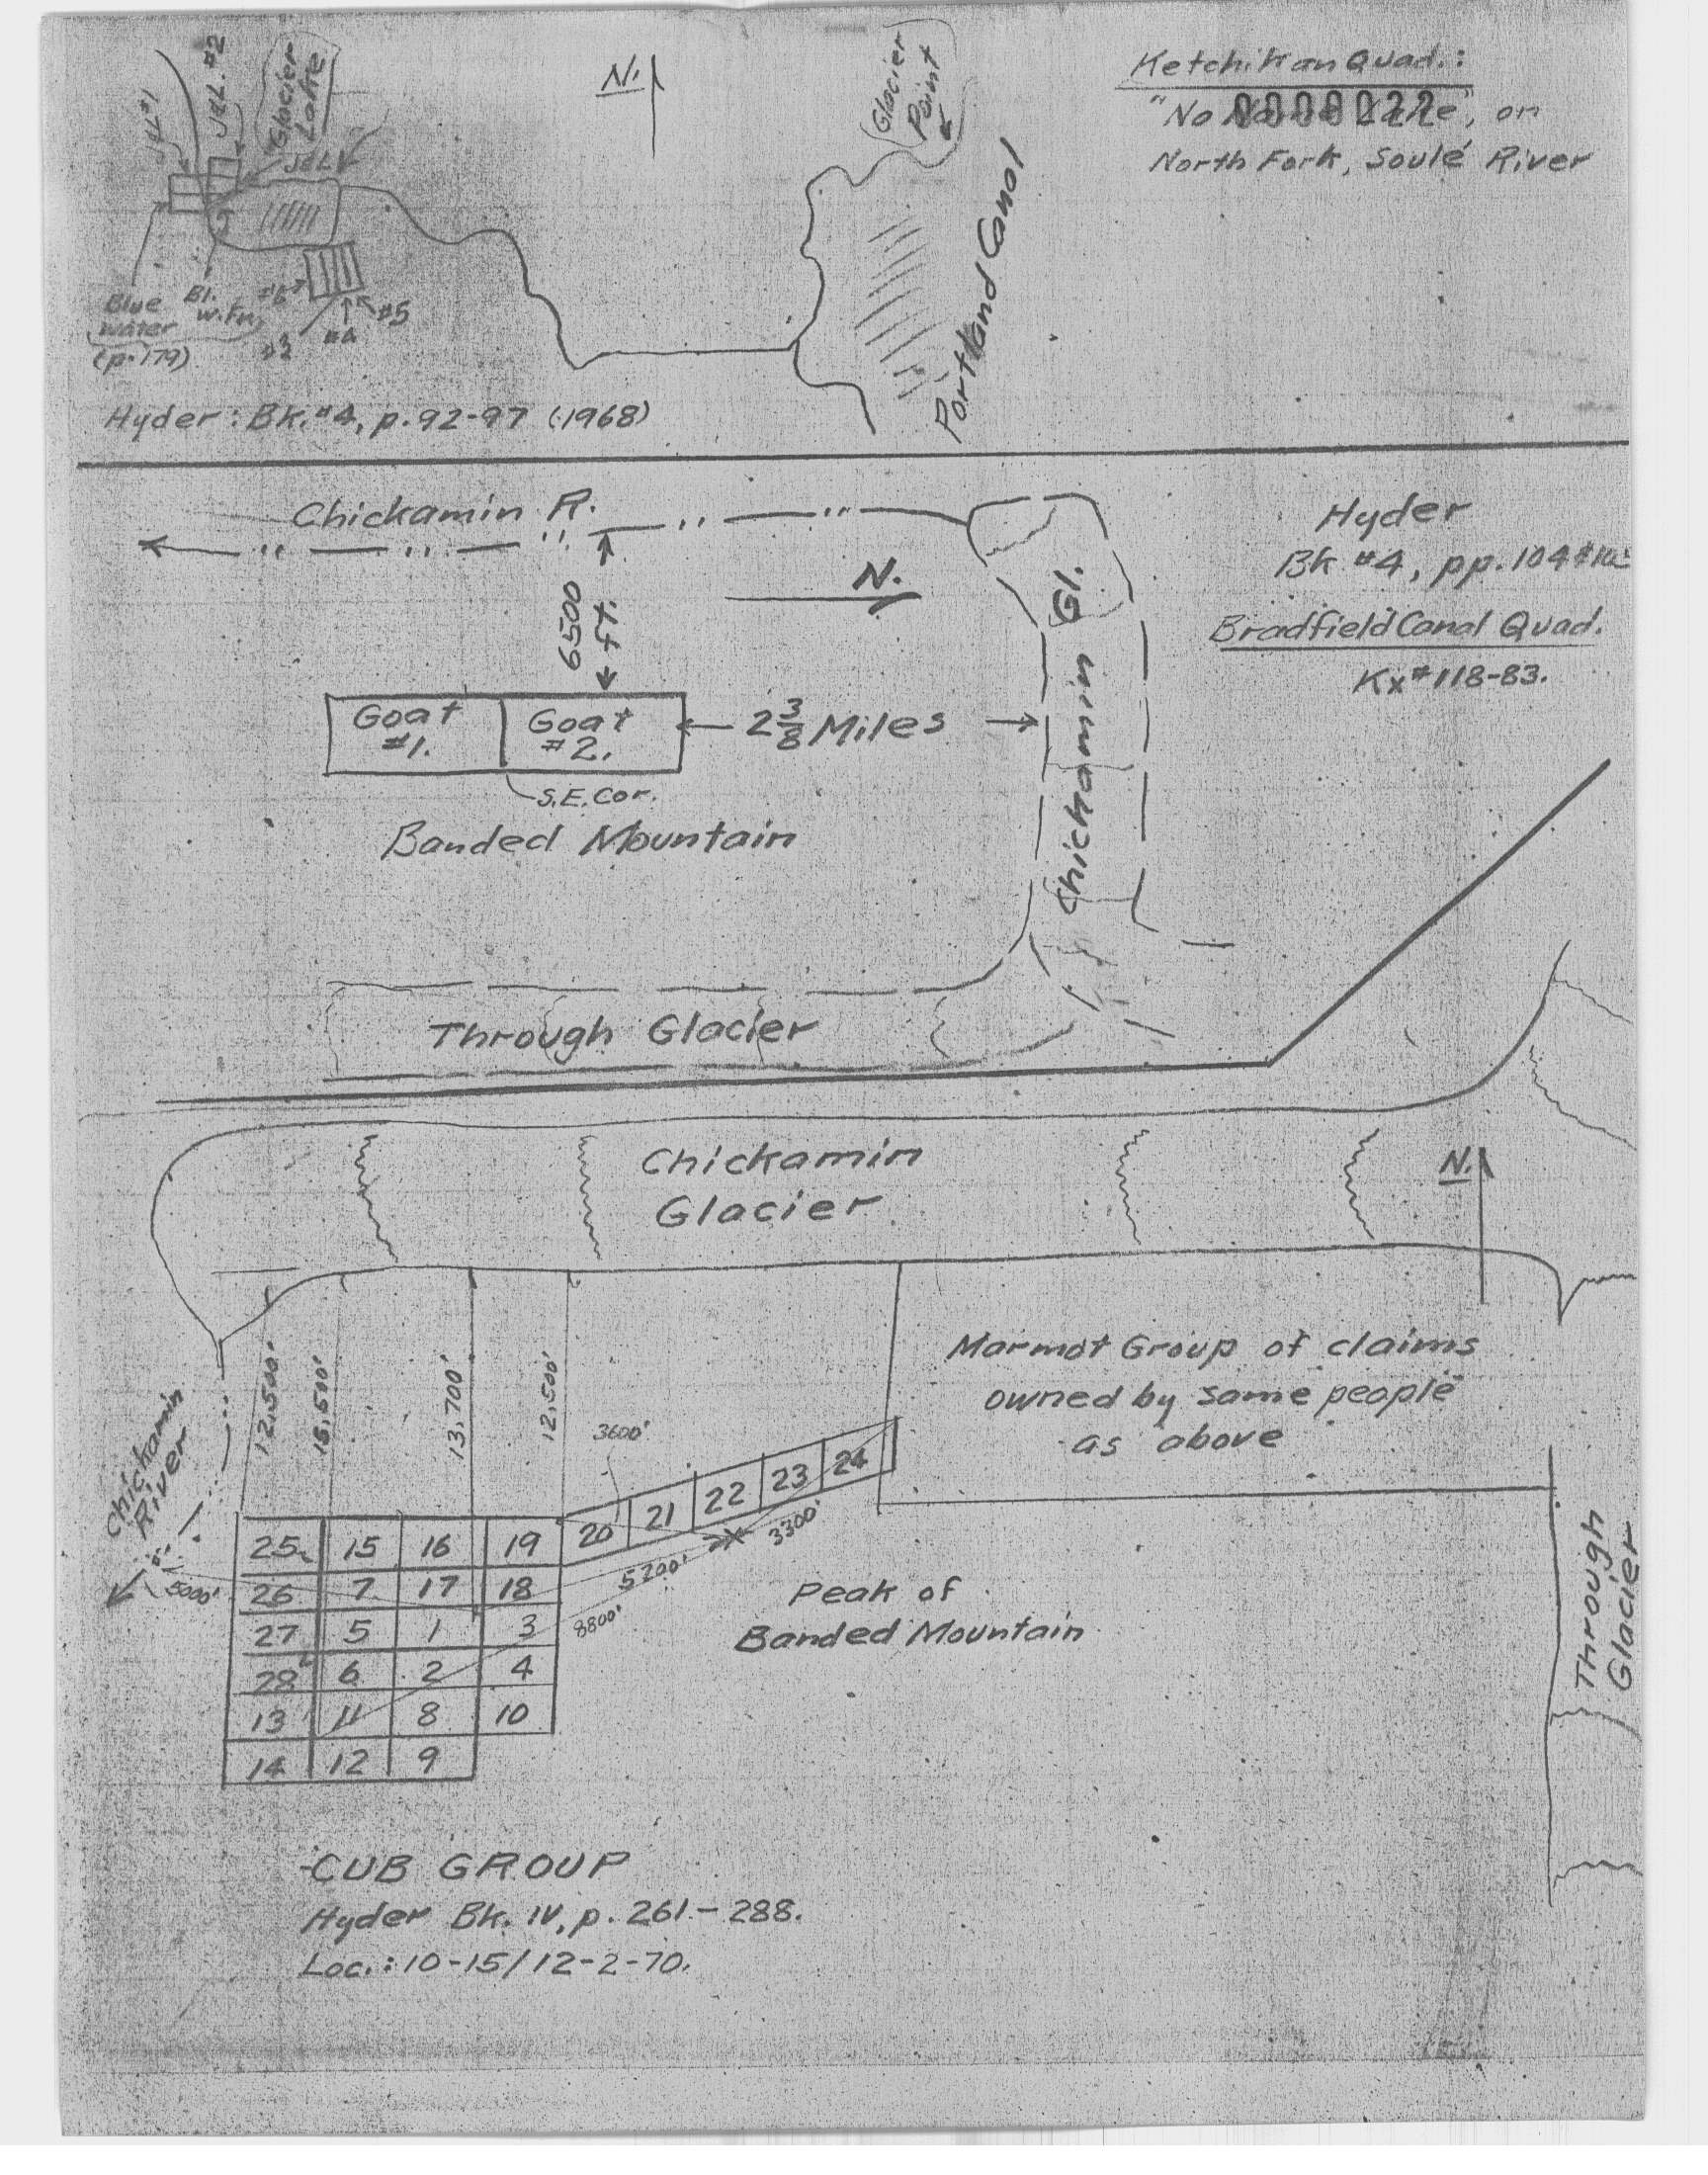 J&L #1
J&L. #2
Glacier
Lake
J&L
N.
Glacier
Point
Portland Canal
Ketchikan Quad.:
"No Name Lake", on
North Fork, Soulé River
Blue
Water
(p. 179)
Bl.
w. Fn.
#6
#3
#4
#5
Hyder: Bk. #4, p. 92-97 (1968)
Chickamin R.
6500
ft.
N.
Chickamin Gl.
Hyder
Bk #4, pp. 104
Bradfield Canal Quad.
Kx #118-83.
Goat
#1.
Goat
#2.
2 3/8 Miles
S.E. Cor.
Banded Mountain
Through Glacier
Chickamin
Glacier
N.
Chickamin
River
12,500'
13,700'
12,500'
3600'
Marmot Group of claims
owned by same people
as above
20 21 22 23 24
3300'
5200'
8800'
5000'
25 15 16 19
26 7 17 18
27 5 1 3
28 6 2 4
13 11 8 10
14 12 9
Peak of
Banded Mountain
Through
Glacier
CUB GROUP
Hyder Bk. IV, p. 261 - 288.
Loc.: 10-15/12-2-70.